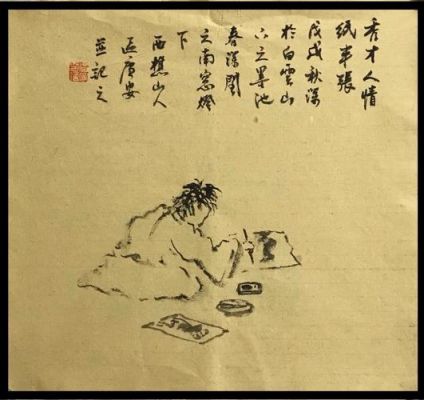 秀才人情
纸半張
戊戌秋深
於白雲山
之墨池
春深閣
之南窓燈
下
西樵山人
区廣安
並記之